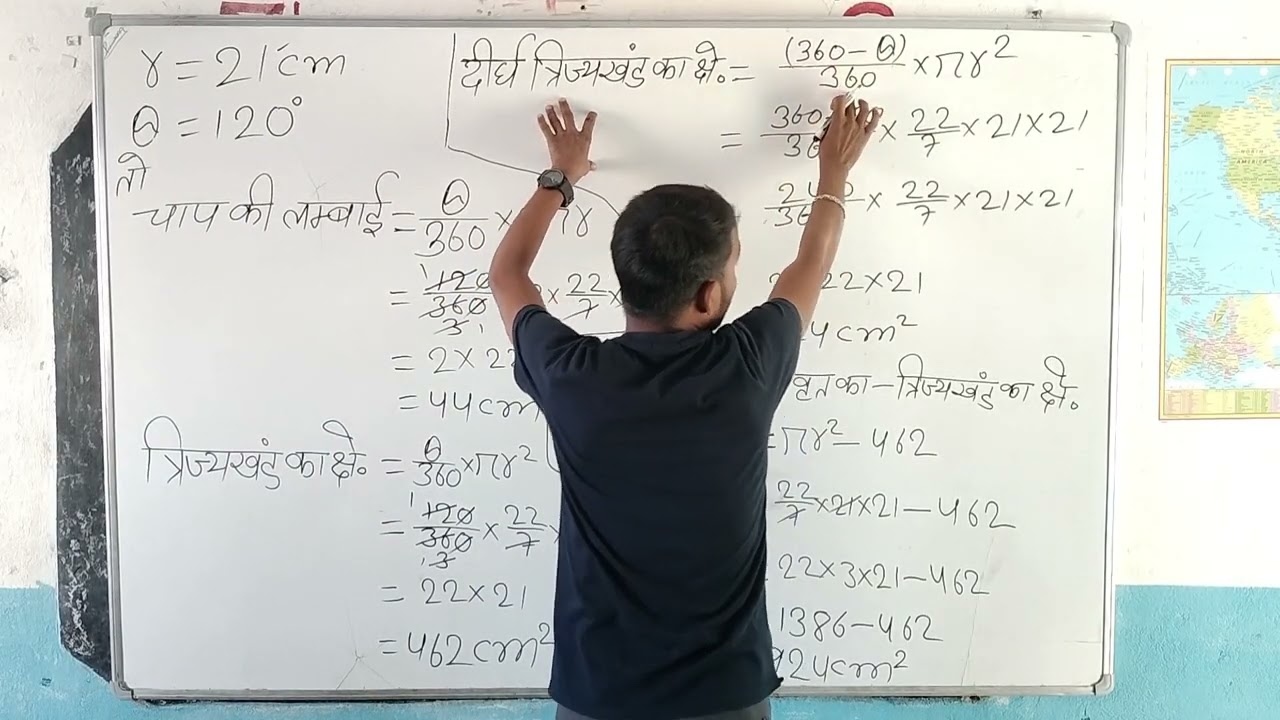 r = 21 cm
θ = 120°
तो
चाप की लम्बाई = θ/360 × πr
= 120/360 × 22/7 ×
= 2 × 22
= 44 cm
त्रिज्यखंड का क्षे. = θ/360 × πr²
= 120/360 × 22/7 ×
= 22 × 21
= 462 cm²
दीर्घ त्रिज्यखंड का क्षे. = (360 - θ)/360 × πr²
= 360 × 22/7 × 21 × 21
× 22/7 × 21 × 21
22 × 21
4 cm²
वृत का - त्रिज्यखंड का क्षे.
= πr² - 462
22/7 × 21 × 21 - 462
22 × 3 × 21 - 462
1386 - 462
924 cm²
NORTH AMERICA